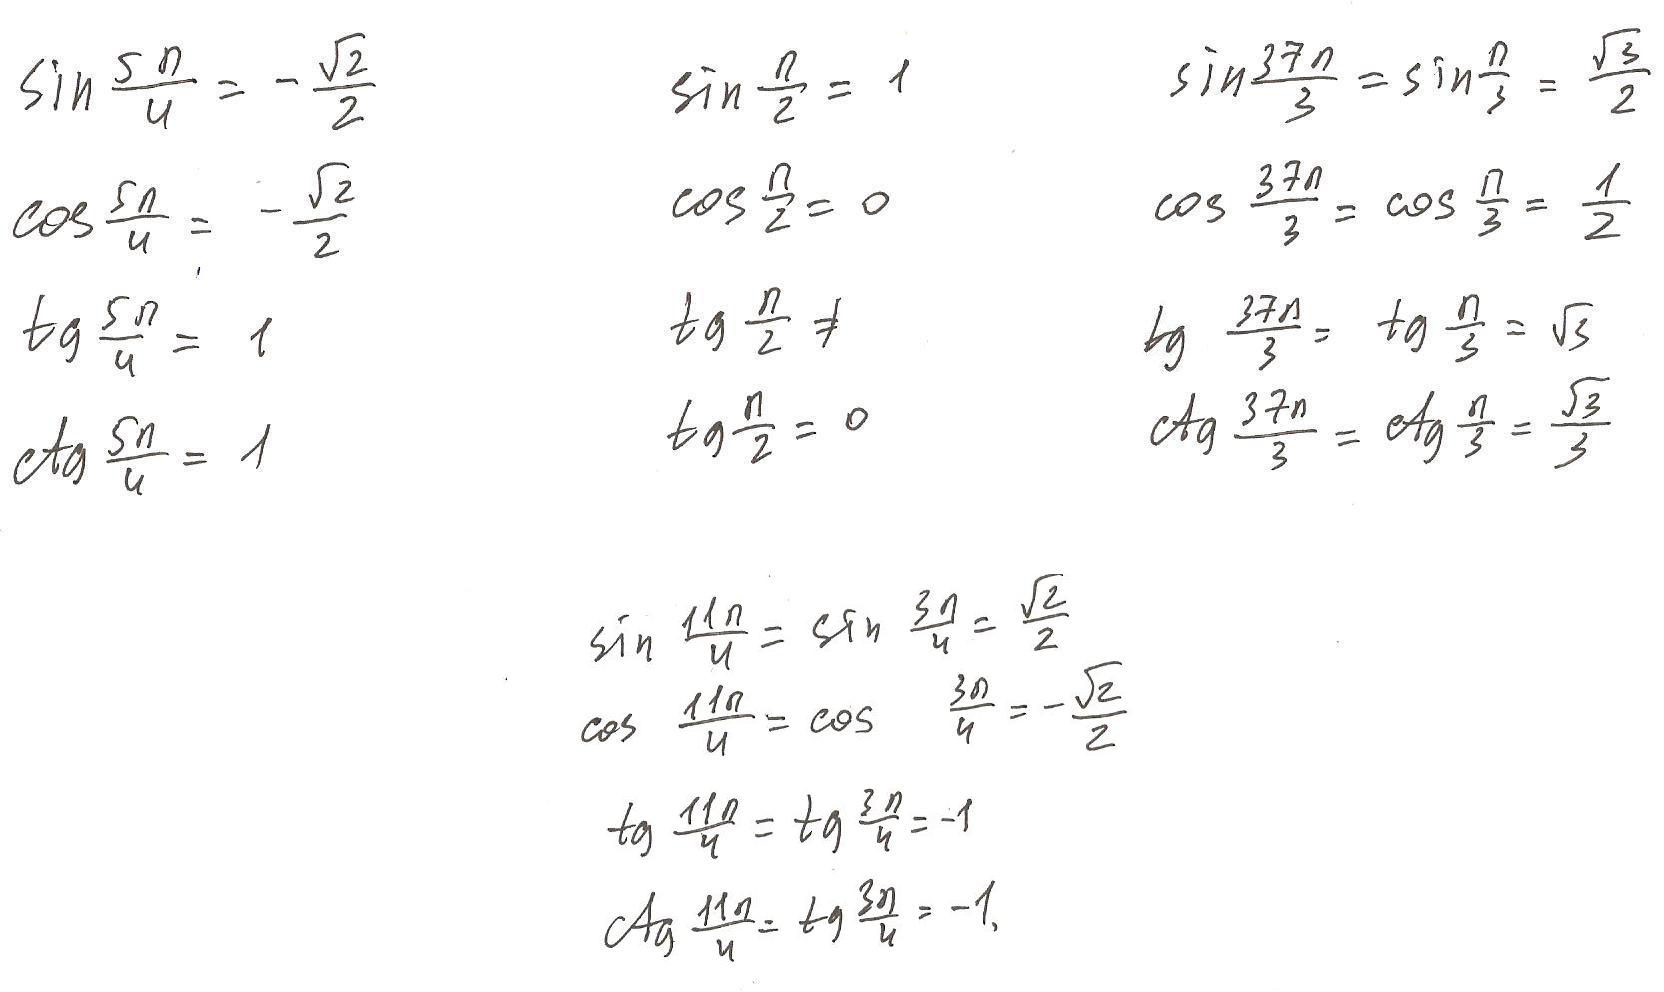 sin 5π/4 = -√2/2
cos 5π/4 = -√2/2
tg 5π/4 = 1
ctg 5π/4 = 1
sin π/2 = 1
cos π/2 = 0
tg π/2 ≠
tg π/2 = 0
sin 37π/3 = sin π/3 = √3/2
cos 37π/3 = cos π/3 = 1/2
tg 37π/3 = tg π/3 = √3
ctg 37π/3 = ctg π/3 = √3/3
sin 11π/4 = sin 3π/4 = √2/2
cos 11π/4 = cos 3π/4 = -√2/2
tg 11π/4 = tg 3π/4 = -1
ctg 11π/4 = tg 3π/4 = -1.